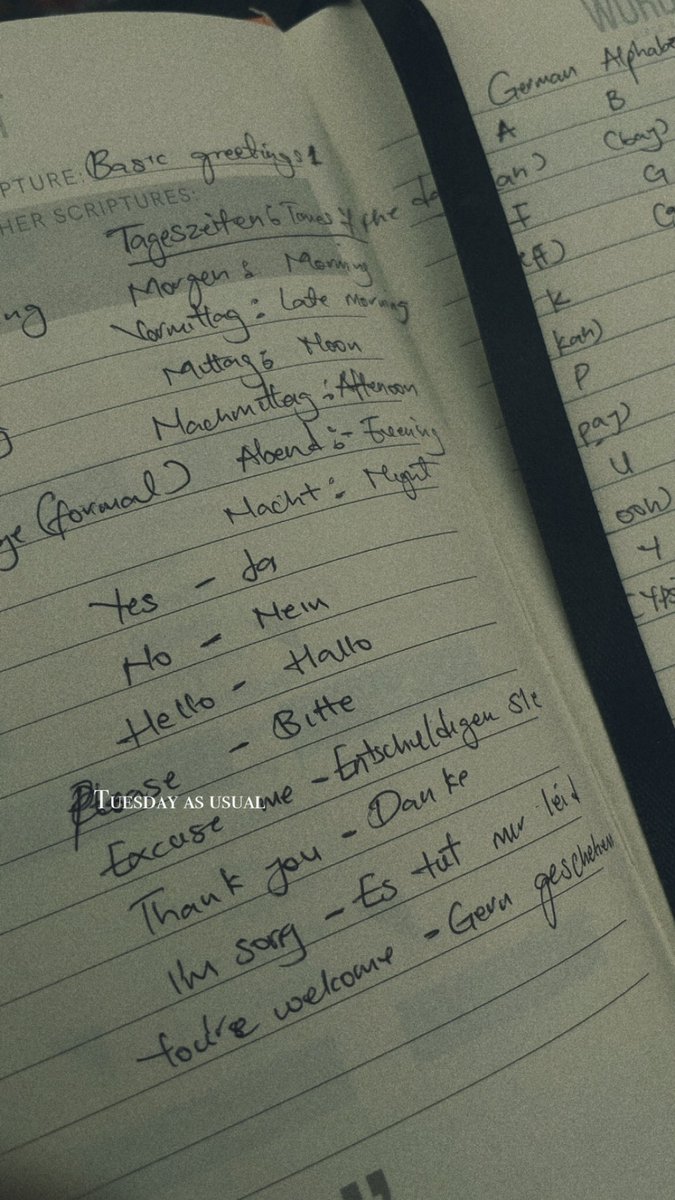 PTURE: Basic greetings 1
HER SCRIPTURES:
Tageszeiten: Times of the da
Morgen: Morning
Vormittag: Late morning
Mittag: Noon
Nachmittag: Afternoon
Abend:- Evening
(formal) Nacht: Night
Yes - Ja
No - Nein
Hello - Hallo
Please - Bitte
TUESDAY AS USUAL
Excuse me - Entschuldigen Sie
Thank you - Danke
I'm sorry - Es tut mir leid
You're welcome - Gern geschehen
WORD
German Alphabe
A B
an) (bay)
F G
eff)
K
kah)
P
pay)
U
ooh)
Y